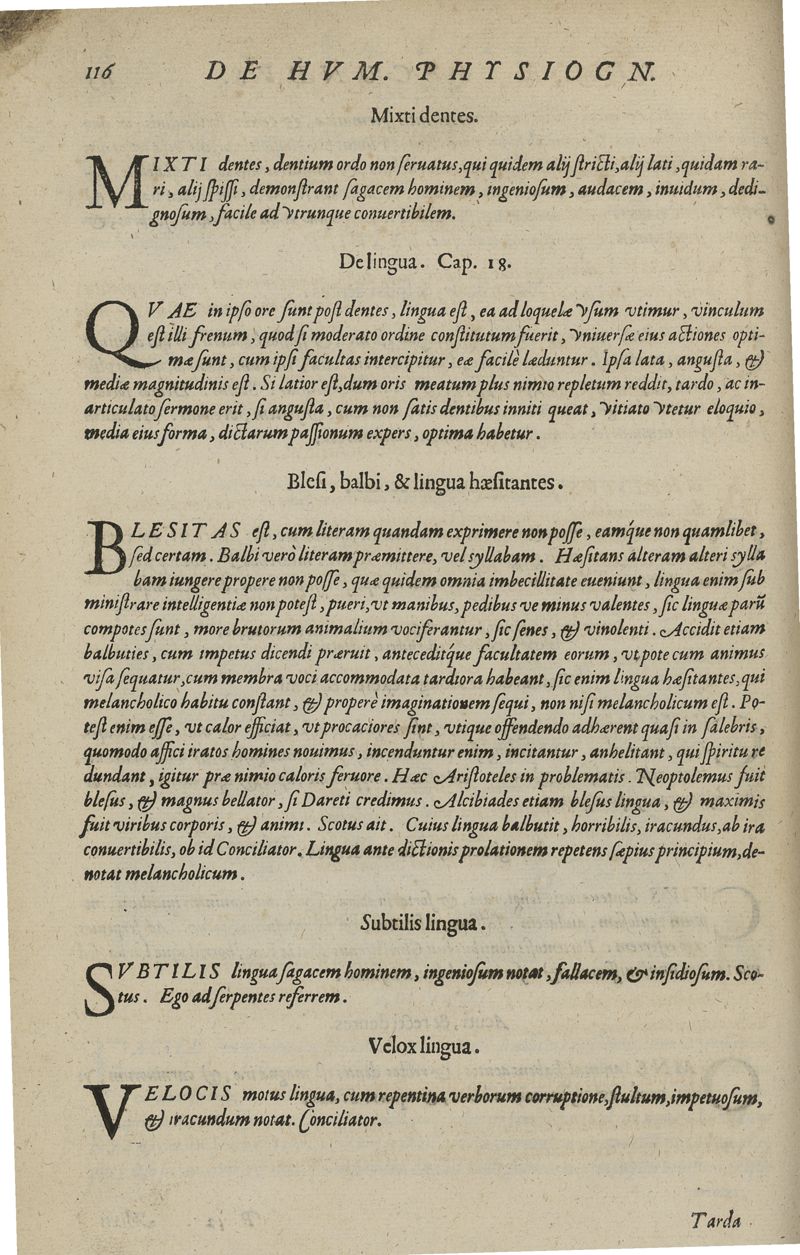 116 DE HVM. PHYSIOGN.
Mixti dentes.
MIXTI dentes, dentium ordo non ſeruatus, qui quidem alij ſtricti, alij lati, quidam ra-
ri, alij ſpiſſi, demonſtrant ſagacem hominem, ingenioſum, audacem, inuidum, dedi-
gnoſum, facile ad vtrunque conuertibilem.
De lingua. Cap. 18.
QVAE in ipſo ore ſunt poſt dentes, lingua eſt, ea ad loquelæ vſum vtimur, vinculum
eſt illi frenum, quod ſi moderato ordine conſtitutum fuerit, vniuerſæ eius actiones opti-
mæ ſunt, cum ipſi facultas intercipitur, eæ facilè læduntur. Ipſa lata, anguſta, &
mediæ magnitudinis eſt. Si latior eſt, dum oris meatum plus nimio repletum reddit, tardo, ac in-
articulato ſermone erit, ſi anguſta, cum non ſatis dentibus inniti queat, vitiato vtetur eloquio,
media eius forma, dictarum paſſionum expers, optima habetur.
Bleſi, balbi, & lingua hæſitantes.
BLESITAS eſt, cum literam quandam exprimere non poſſe, eamq́ue non quamlibet,
ſed certam. Balbi verò literam præmittere, vel syllabam. Hæſitans alteram alteri sylla
bam iungere propere non poſſe, quæ quidem omnia imbecillitate eueniunt, lingua enim ſub
miniſtrare intelligentiæ non poteſt, pueri, vt manibus, pedibus ve minus valentes, ſic linguæ parũ
compotes ſunt, more brutorum animalium vociferantur, ſic ſenes, & vinolenti. Accidit etiam
balbuties, cum impetus dicendi præruit, anteceditq́ue facultatem eorum, vtpote cum animus
viſa ſequatur, cum membra voci accommodata tardiora habeant, ſic enim lingua hæſitantes, qui
melancholico habitu conſtant, & properè imaginationem ſequi, non niſi melancholicum eſt. Po-
teſt enim eſſe, vt calor efficiat, vt procaciores ſint, vtique offendendo adhærent quaſi in ſalebris,
quomodo affici iratos homines nouimus, incenduntur enim, incitantur, anhelitant, qui ſpiritu re
dundant, igitur præ nimio caloris feruore. Hæc Ariſtoteles in problematis. Neoptolemus fuit
bleſus, & magnus bellator, ſi Dareti credimus. Alcibiades etiam bleſus lingua, & maximis
fuit viribus corporis, & animi. Scotus ait. Cuius lingua balbutit, horribilis, iracundus, ab ira
conuertibilis, ob id Conciliator. Lingua ante dictionis prolationem repetens ſæpius principium, de-
notat melancholicum.
Subtilis lingua.
SVBTILIS lingua ſagacem hominem, ingenioſum notat, fallacem, & inſidioſum. Sco-
tus. Ego ad ſerpentes referrem.
Velox lingua.
VELOCIS motus lingua, cum repentina verborum corruptione, ſtultum, impetuoſum,
& iracundum notat. Conciliator.
Tarda